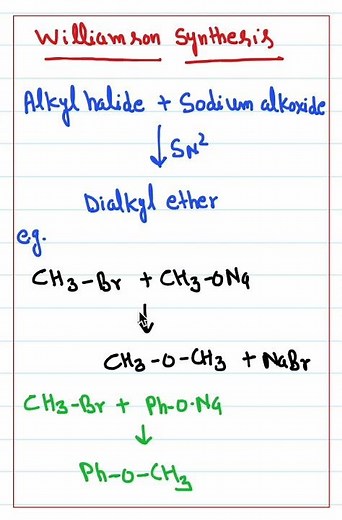 Williamson Synthesis
Alkyl halide + Sodium alkoxide
↓ SN²
Dialkyl ether
eg.
CH₃-Br + CH₃-ONa
↓
CH₃-O-CH₃ + NaBr
CH₃-Br + Ph-O·Na
↓
Ph-O-CH₃